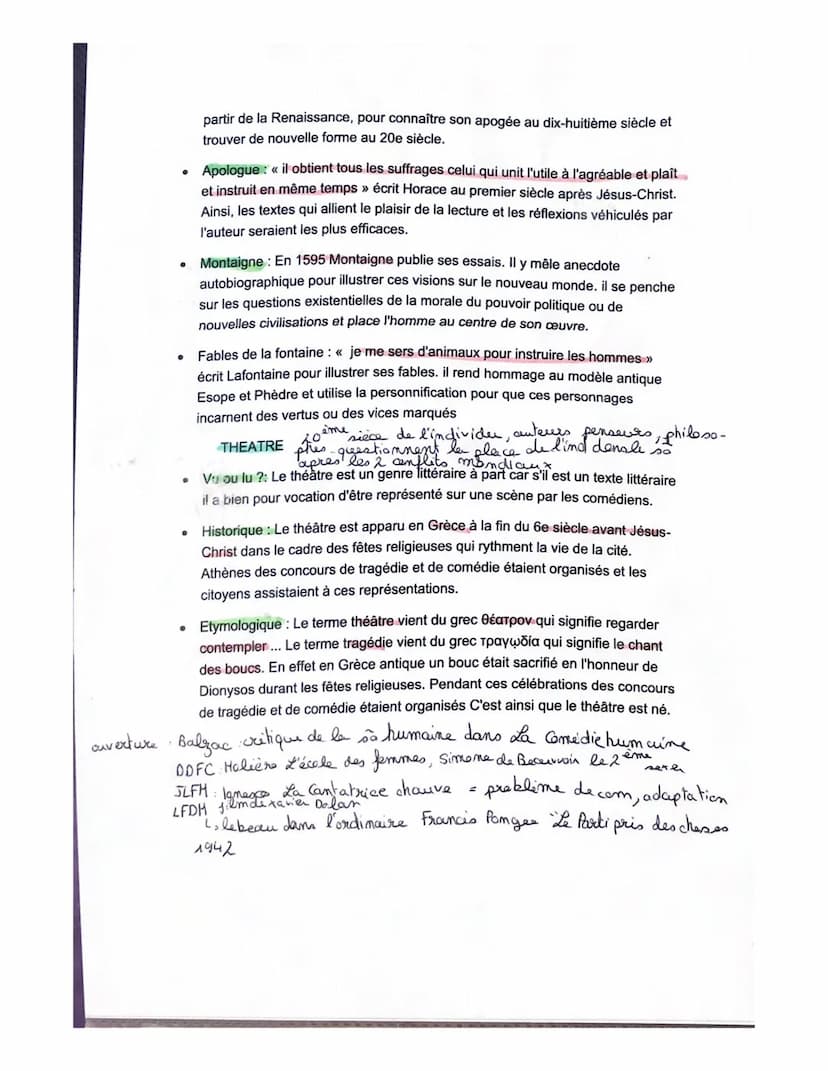 partir de la Renaissance, pour connaître son apogée au dix-huitième siècle et
trouver de nouvelle forme au 20e siècle.
• Apologue : « il obtient tous les suffrages celui qui unit l'utile à l'agréable et plaît
et instruit en même temps » écrit Horace au premier siècle après Jésus-Christ.
Ainsi, les textes qui allient le plaisir de la lecture et les réflexions véhiculés par
l'auteur seraient les plus efficaces.
• Montaigne : En 1595 Montaigne publie ses essais. Il y mêle anecdote
autobiographique pour illustrer ces visions sur le nouveau monde. il se penche
sur les questions existentielles de la morale du pouvoir politique ou de
nouvelles civilisations et place l'homme au centre de son œuvre.
• Fables de la fontaine : « je me sers d'animaux pour instruire les hommes »
écrit Lafontaine pour illustrer ses fables. il rend hommage au modèle antique
Esope et Phèdre et utilise la personnification pour que ces personnages
incarnent des vertus ou des vices marqués
20ème siècle de l'individu, auteurs penseurs, philoso-
THEATRE phes questionnent la place de l'ind dans la so
après les 2 conflits mondiaux
• Vu ou lu ?: Le théâtre est un genre littéraire à part car s'il est un texte littéraire
il a bien pour vocation d'être représenté sur une scène par les comédiens.
• Historique : Le théâtre est apparu en Grèce à la fin du 6e siècle avant Jésus-
Christ dans le cadre des fêtes religieuses qui rythment la vie de la cité.
Athènes des concours de tragédie et de comédie étaient organisés et les
citoyens assistaient à ces représentations.
• Etymologique : Le terme théâtre vient du grec θέατρον qui signifie regarder
contempler ... Le terme tragédie vient du grec τραγῳδία qui signifie le chant
des boucs. En effet en Grèce antique un bouc était sacrifié en l'honneur de
Dionysos durant les fêtes religieuses. Pendant ces célébrations des concours
de tragédie et de comédie étaient organisés C'est ainsi que le théâtre est né.
ouverture . Balzac critique de la so humaine dans La Comédie humaine
DDFC Molière L'école des femmes, Simone de Beauvoir le 2ème
sexe
JLFM : Ionesco La Cantatrice chauve = problème de com, adaptation
LFDM film de Xavier Dolan
↳ le beau dans l'ordinaire Francis Ponge "Le Parti pris des choses
1942